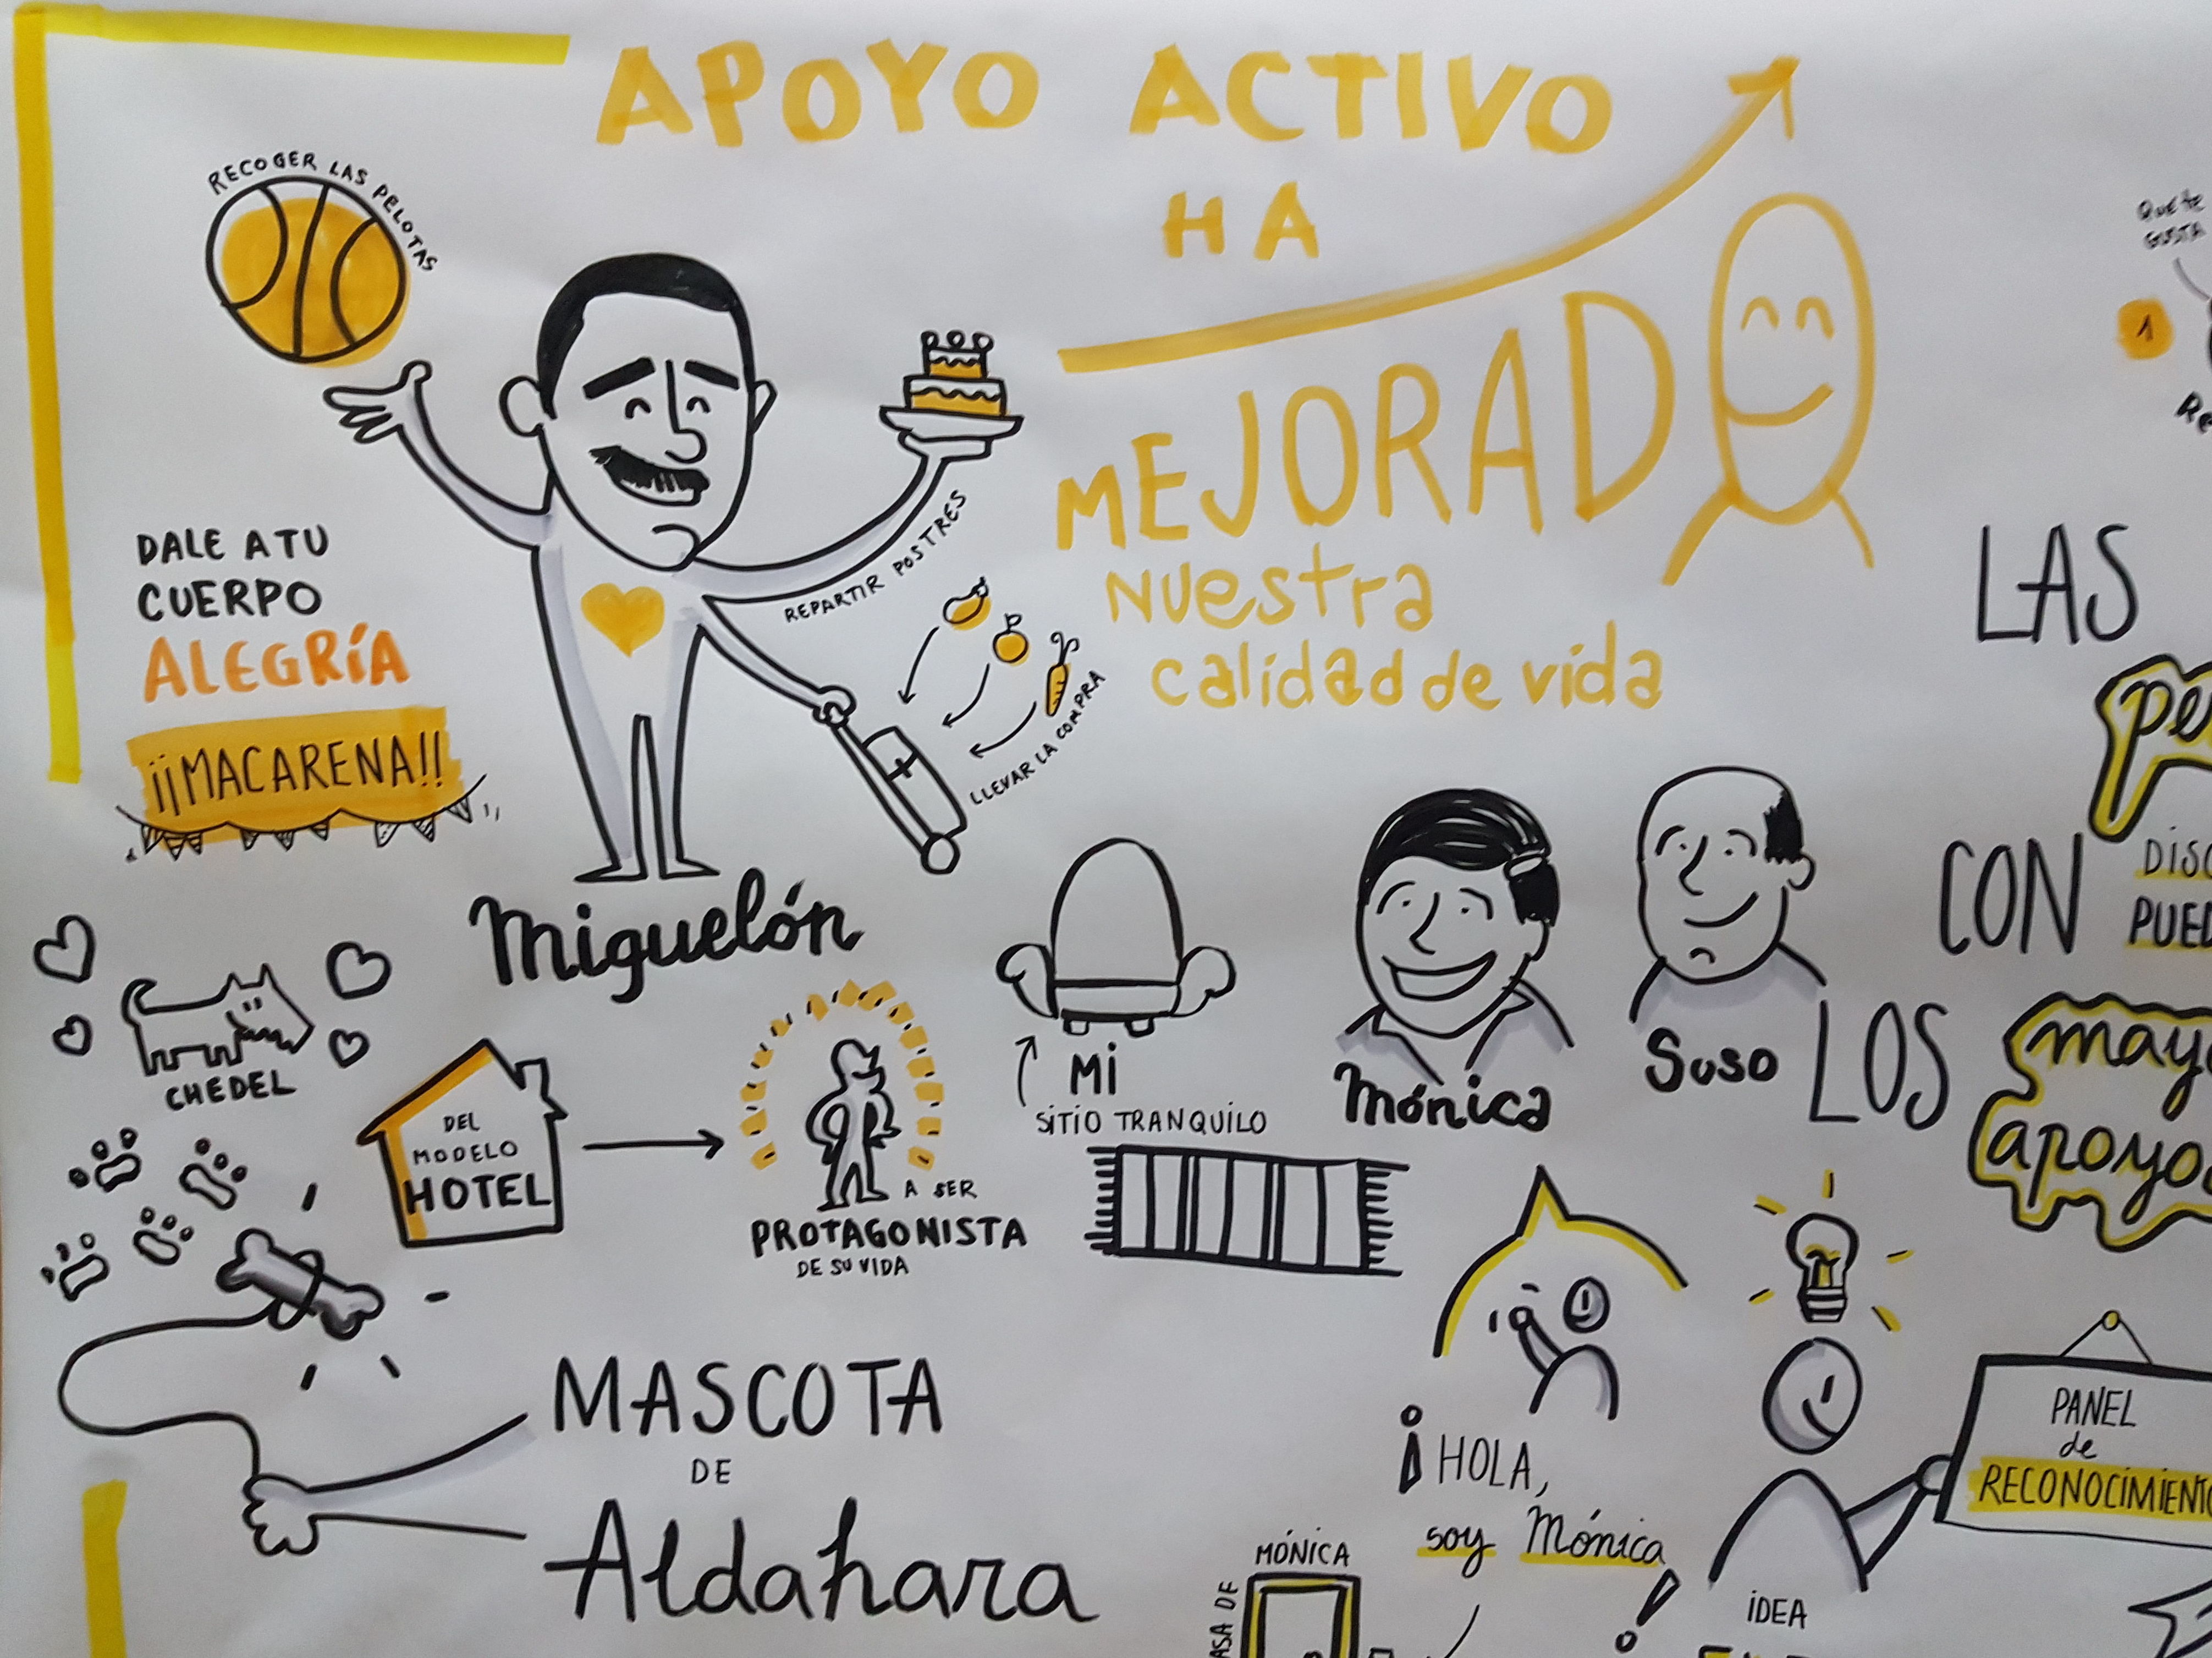 APOYO ACTIVO
HA
MEJORADO
Nuestra
calidad de vida
RECOGER LAS PELOTAS
REPARTIR POSTRES
LLEVAR LA COMPRA
DALE A TU
CUERPO
ALEGRÍA
¡¡MACARENA!!
Miguelón
CHEDEL
DEL
MODELO
HOTEL
A SER
PROTAGONISTA
DE SU VIDA
MI
SITIO TRANQUILO
Mónica
Suso
MASCOTA
DE
Aldahara
Que te
GUSTA
1
LAS
CON
LOS
¡HOLA,
soy Mónica
!
MÓNICA
PANEL
de
RECONOCIMIENTO
IDEA